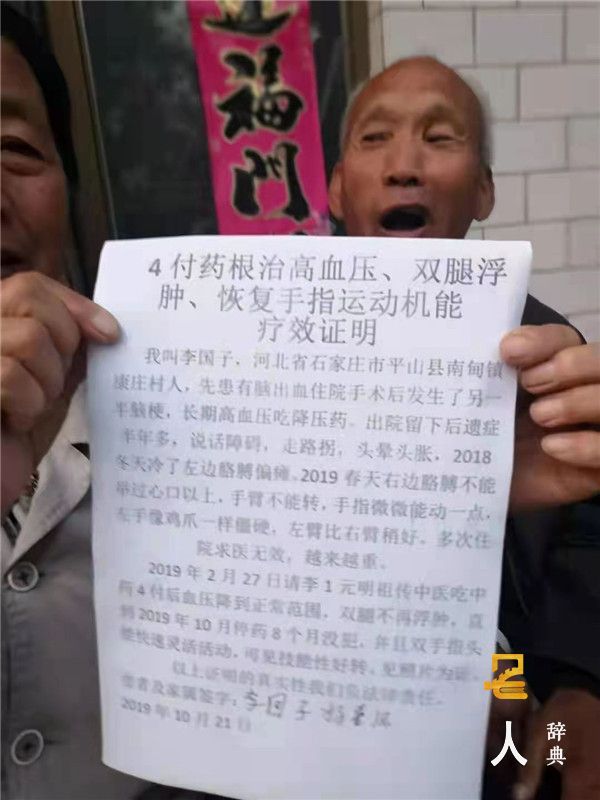 福门
4付药根治高血压、双腿浮
肿、恢复手指运动机能
疗效证明
我叫李国子，河北省石家庄市平山县南甸镇
康庄村人，先患有脑出血住院手术后发生了另一
半脑梗，长期高血压吃降压药。出院留下后遗症
半年多，说话障碍，走路拐，头晕头胀，2018
冬天冷了左边胳膊偏瘫。2019春天右边胳膊不能
举过心口以上，手臂不能转，手指微微能动一点，
左手像鸡爪一样僵硬，左臂比右臂稍好。多次住
院求医无效，越来越重。
2019年2月27日请李1元明祖传中医吃中
药4付后血压降到正常范围，双腿不再浮肿，直
到2019年10月停药8个月没犯，并且双手指头
能快速灵活活动，可见技能性好转，见照片为证。
以上证明的真实性我们负法律责任。
患者及家属签字：李国子
2019年10月21日
人
辞典